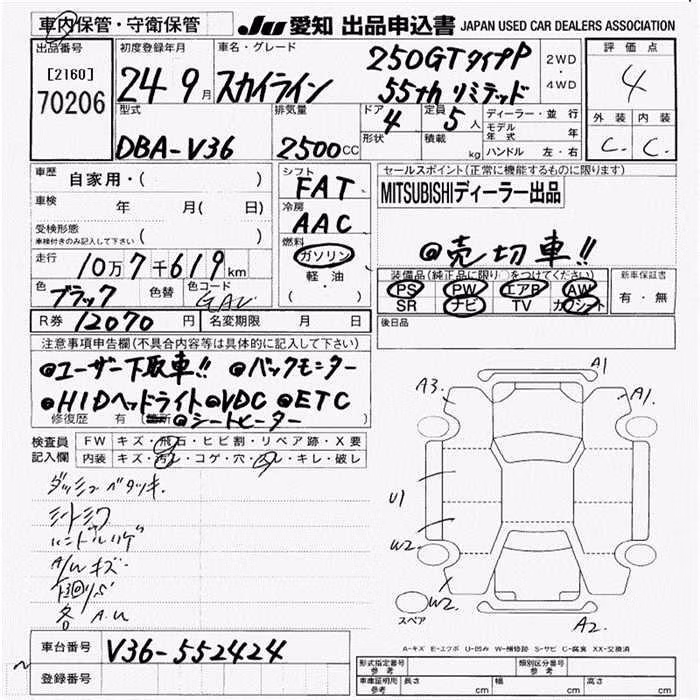 車内保管・守衛保管
JU 愛知 出品申込書 JAPAN USED CAR DEALERS ASSOCIATION
出品番号
[2160]
70206
初度登録年月
24 9月
車名・グレード
スカイライン
250GTタイプP
55th リミテッド
2WD
・
4WD
評価点
4
外装 内装
C. C.
型式
DBA-V36
排気量
2500cc
ドア
4
形状
定員
5人
積載
kg
ディーラー・並行
モデル年式 年
ハンドル 左・右
車歴 自家用・( )
車検 年 月( 日)
受検形態
車検付きのみ記入して下さい ( )
走行 10万7千619km
色 ブラック 色替 色コード GAC
シフト
FAT
冷房
AAC
燃料
ガソリン
軽油
( ・ )
セールスポイント(正常に機能するものに限ります)
MITSUBISHIディーラー出品
@売切車!!
装備品(純正品に限り○をつけてください)
PS PW エアB AW
SR ナビ TV カワシート
新車保証書
有・無
R券 12070円 名変期限 月 日
後日品
注意事項申告欄(不具合内容等は具体的に記入して下さい)
@ユーザー下取車!! @バックモニター
@HIDヘッドライト @VDC @ETC
修復歴 有 @シートヒーター
検査員
記入欄
FW キズ・飛石・ヒビ割・リペア跡・X要
内装 キズ・汚レ・コゲ・穴・スレ・キレ・破レ
ダッシュベタツキ.
シートシワ
ハンドルハゲ
A/Wキズ
各 A.U
A3. A1 A1.
U1
W2.
W2.
A2.
スペア
A-キズ E-エクボ U-凹み W-補修跡 S-サビ C-腐食 XX-交換済
車台番号 V36-552424
登録番号
形式指定番号
参考
類別区分番号
車庫証明用
参考
長さ cm 幅 cm 高さ cm